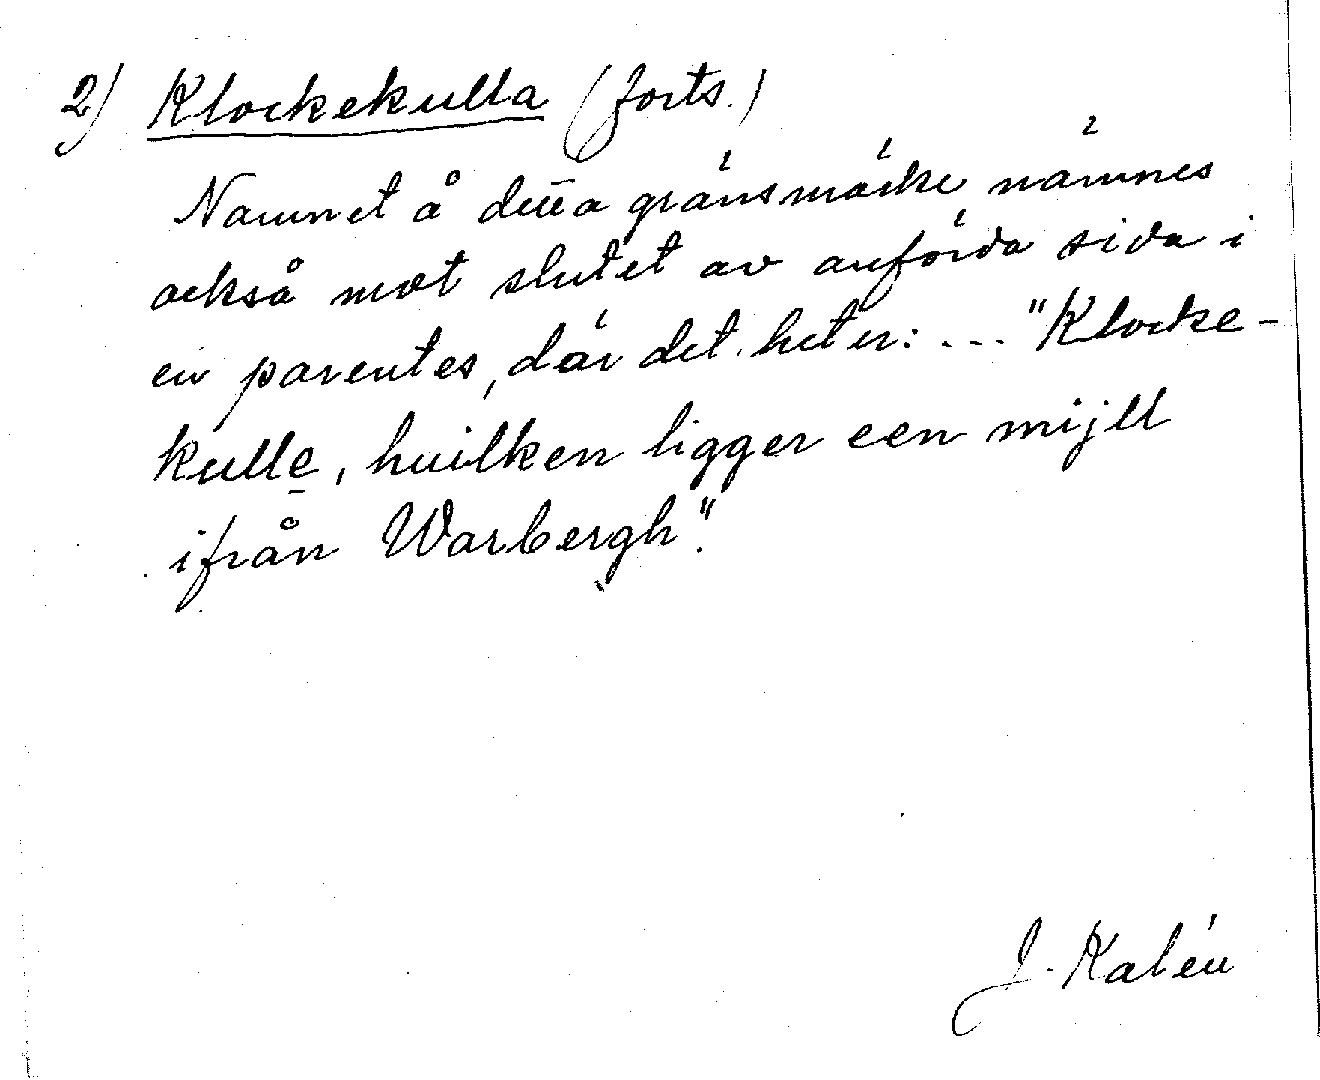 2) Klockekulla (forts.)
Namnet å detta gränsmärke nämnes
också mot slutet av anförda sida i
en parentes, där det heter: ... "Klocke-
kulle, huilken ligger een mijll
ifrån Warbergh".
J. Kalén